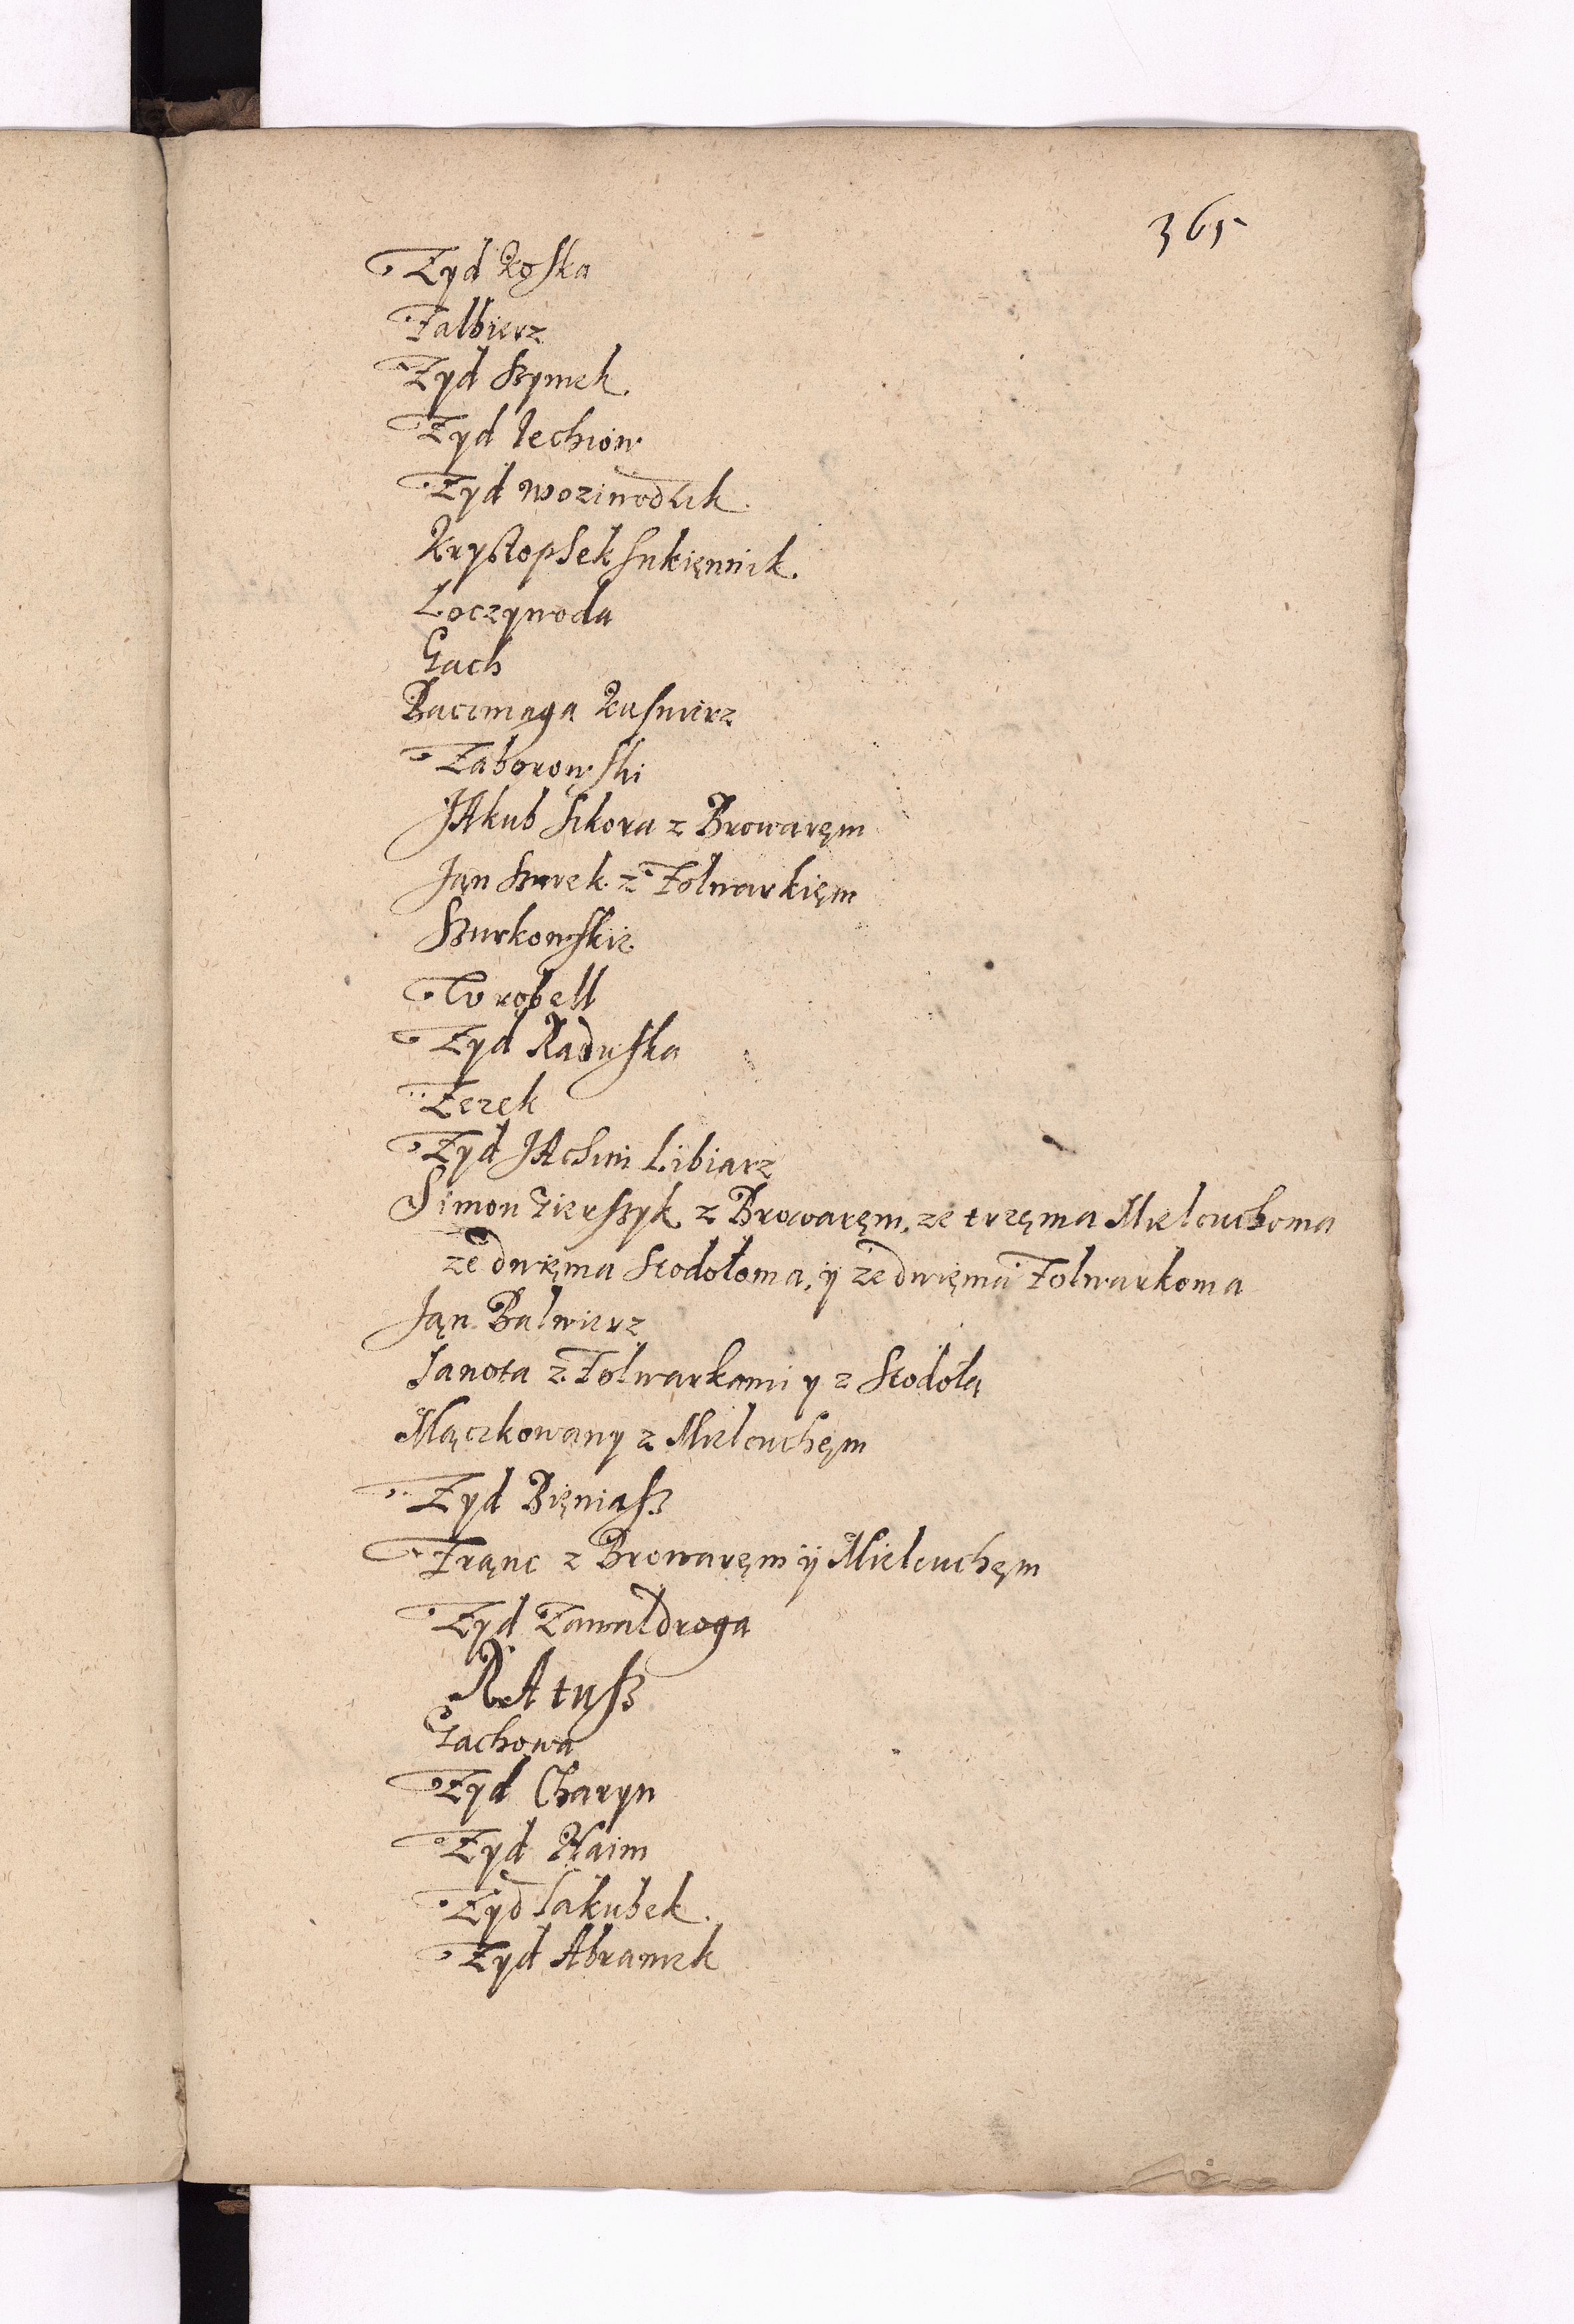 365
Zyd Koska
Falbierz
Zyd Szymek
Zyd Jechiow
Zyd
Krystophek sukięnnik.
Loczywoda
Gach
Baczmaga Kusnierz
Zaborowski
JAkub Sikora z Browaręm
Jąn Szurek z Folwarkięm
Szurkowskie
Wrobell
Zyd Raduska
Zezek
Zyd Libiarz
Simon z Browaręm, ze trzęma Mielcuchoma
ze dwięma Stodołoma, y ze dwięma Folwarkoma
Jąn Balwierz
Janota z Folwarkami y z Stodołą
Mączkowany z Mielcuchęm
Zyd Bięniasz
Frąnc z Browaręm ÿ Mielcuchęm
Zyd Zawaldroga
RAtusz
Gachowa
Zyd Charyn
Zyd Haim
Zyd Jakubek.
Zyd Abramek